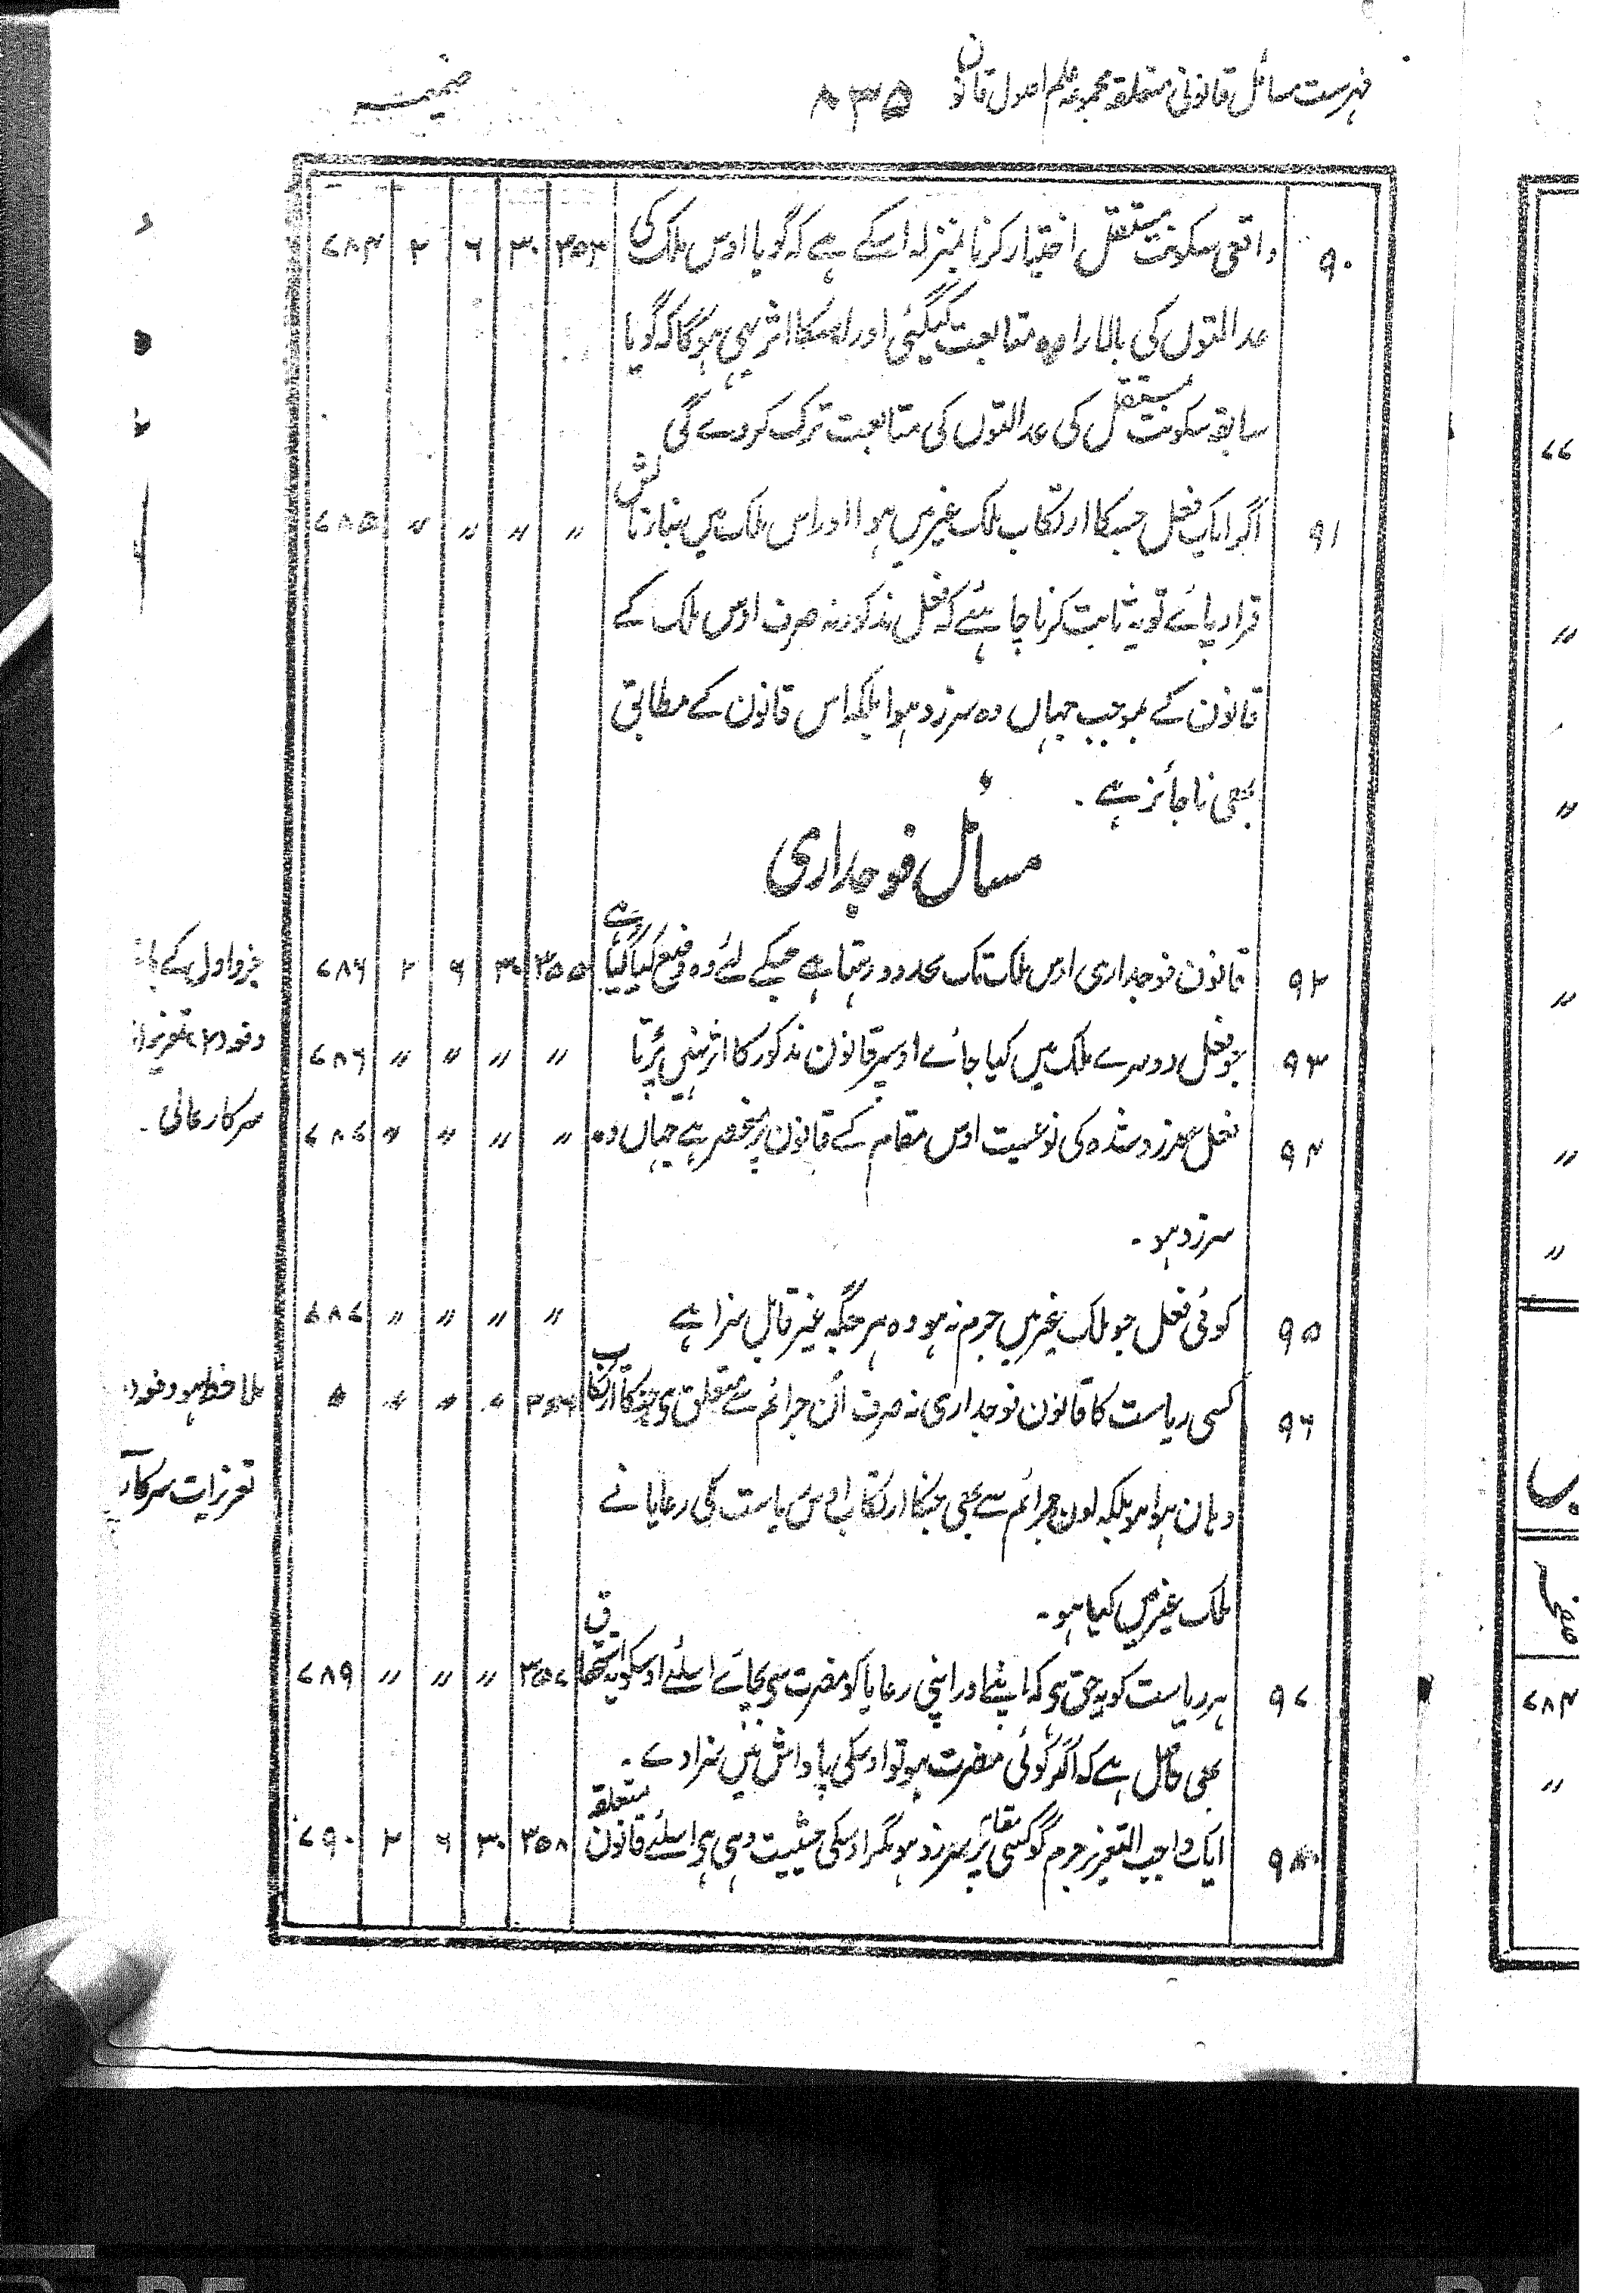 فہرست مسائل قانونی متعلقہ مجموعہ علم اصول قانون ۸۳۵ ضمیمہ
۹۰ واقعی سکونت مستقل اختیار کرنا بمنزلہ اسکے ہے کہ گویا اوس ملک کی ۳۵۳ ۳۰ ۶ ۲ ۷۸۴
عدالتوں کی بالارادہ متابعت کیگئی اور اسکا اثر یہی ہوگا کہ گویا
سابقہ سکونت مستقل کی عدالتوں کی متابعت ترک کردے گی
۹۱ اگر ایک فعل جسکا ارتکاب ملک غیر میں ہوا اور اس ملک میں بناء نالش " " " " ۷۸۵
قرار پائے تو یہ ثابت کرنا چاہئے کہ فعل مذکور نہ صرف اوس ملک کے
قانون کے بموجب جہاں وہ سرزد ہوا بلکہ اس قانون کے مطابق
بھی ناجائز ہے۔
مسائل فوجداری
۹۲ قانون فوجداری اوس ملک تک محدود رہتا ہے جسکے لئے وہ وضع کیا گیا ہے ۳۵۵ ۳۰ ۶ ۲ ۷۸۶ جزو اول کے
۹۳ جو فعل دوسرے ملک میں کیا جائے اوسپر قانون مذکور کا اثر نہیں پڑتا " " " " ۷۸۶ دفعہ (۲) تعزیرات
۹۴ فعل سرزد شدہ کی نوعیت اوس مقام کے قانون پر منحصر ہے جہاں وہ " " " " ۷۸۷ سرکار عالی۔
سرزد ہو۔
۹۵ کوئی فعل جو ملک غیر میں جرم نہ ہو وہ ہر جگہ غیر قابل سزا ہے " " " " ۷۸۷
۹۶ کسی ریاست کا قانون فوجداری نہ صرف اُن جرائم سے متعلق ہی جنکا ارتکاب ۳۵۶ " " " ملاحظہ ہو دفعہ
وہان ہوا ہو بلکہ اون جرائم سے بھی جنکا ارتکاب اوس ریاست کی رعایا نے تعزیرات سرکار
ملک غیر میں کیا ہو۔
۹۷ ہر ریاست کو یہ حق ہی کہ اپنے اور اپنی رعایا کو مضرت سی بچائے اسلئے اوسکو یہ استحقاق ۳۵۷ " " " ۷۸۹
بھی حاصل ہے کہ اگر کوئی مضرت ہو تو اوسکی پاداش میں سزا دے۔
۹۸ ایک واجب التعزیر جرم گو کسی مقام پر سرزد ہو مگر اوسکی حیثیت وہی ہی اسلئے قانون متعلقہ ۳۵۸ ۳۰ ۶ ۲ ۷۹۰
۷۷
"
"
"
"
"
۷۸۴
"